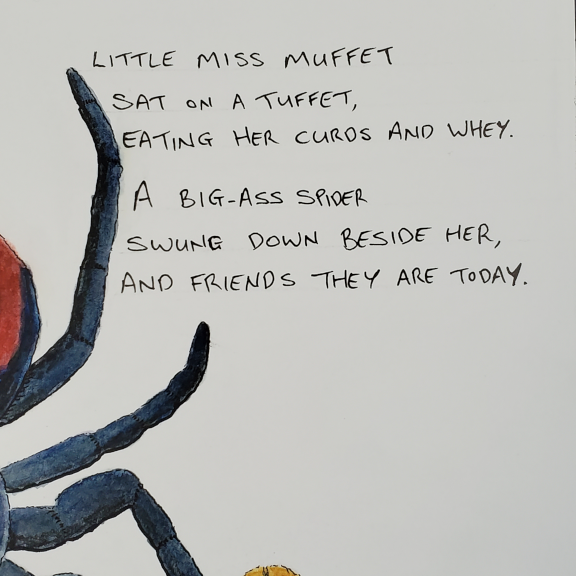 LITTLE MISS MUFFET
SAT ON A TUFFET,
EATING HER CURDS AND WHEY.
A BIG-ASS SPIDER
SWUNG DOWN BESIDE HER,
AND FRIENDS THEY ARE TODAY.